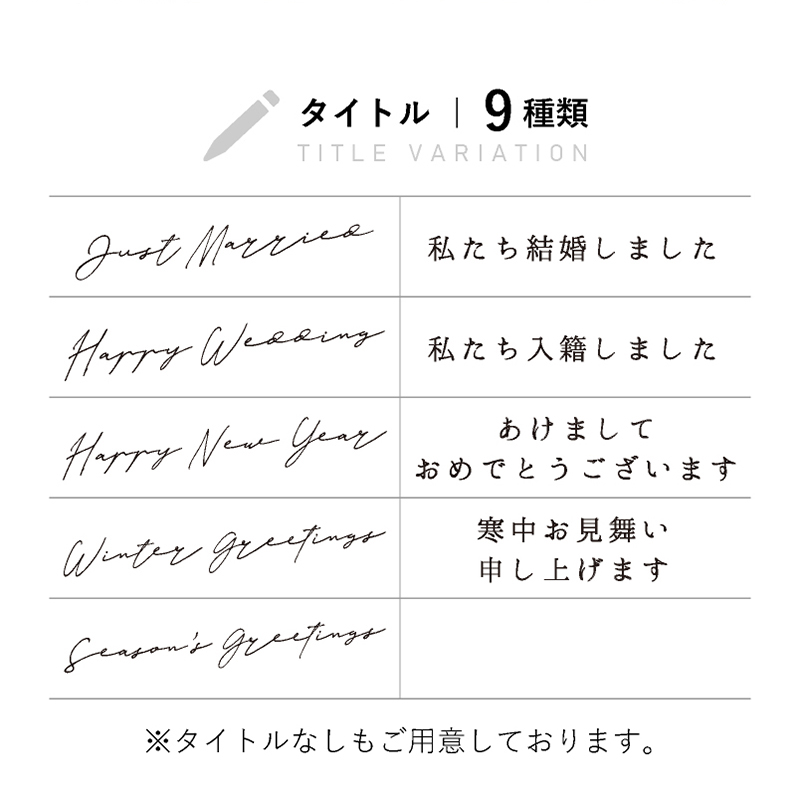 タイトル | 9種類
TITLE VARIATION
Just Married
私たち結婚しました
Happy Wedding
私たち入籍しました
Happy New Year
あけまして
おめでとうございます
Winter Greetings
寒中お見舞い
申し上げます
Season's Greetings
※タイトルなしもご用意しております。